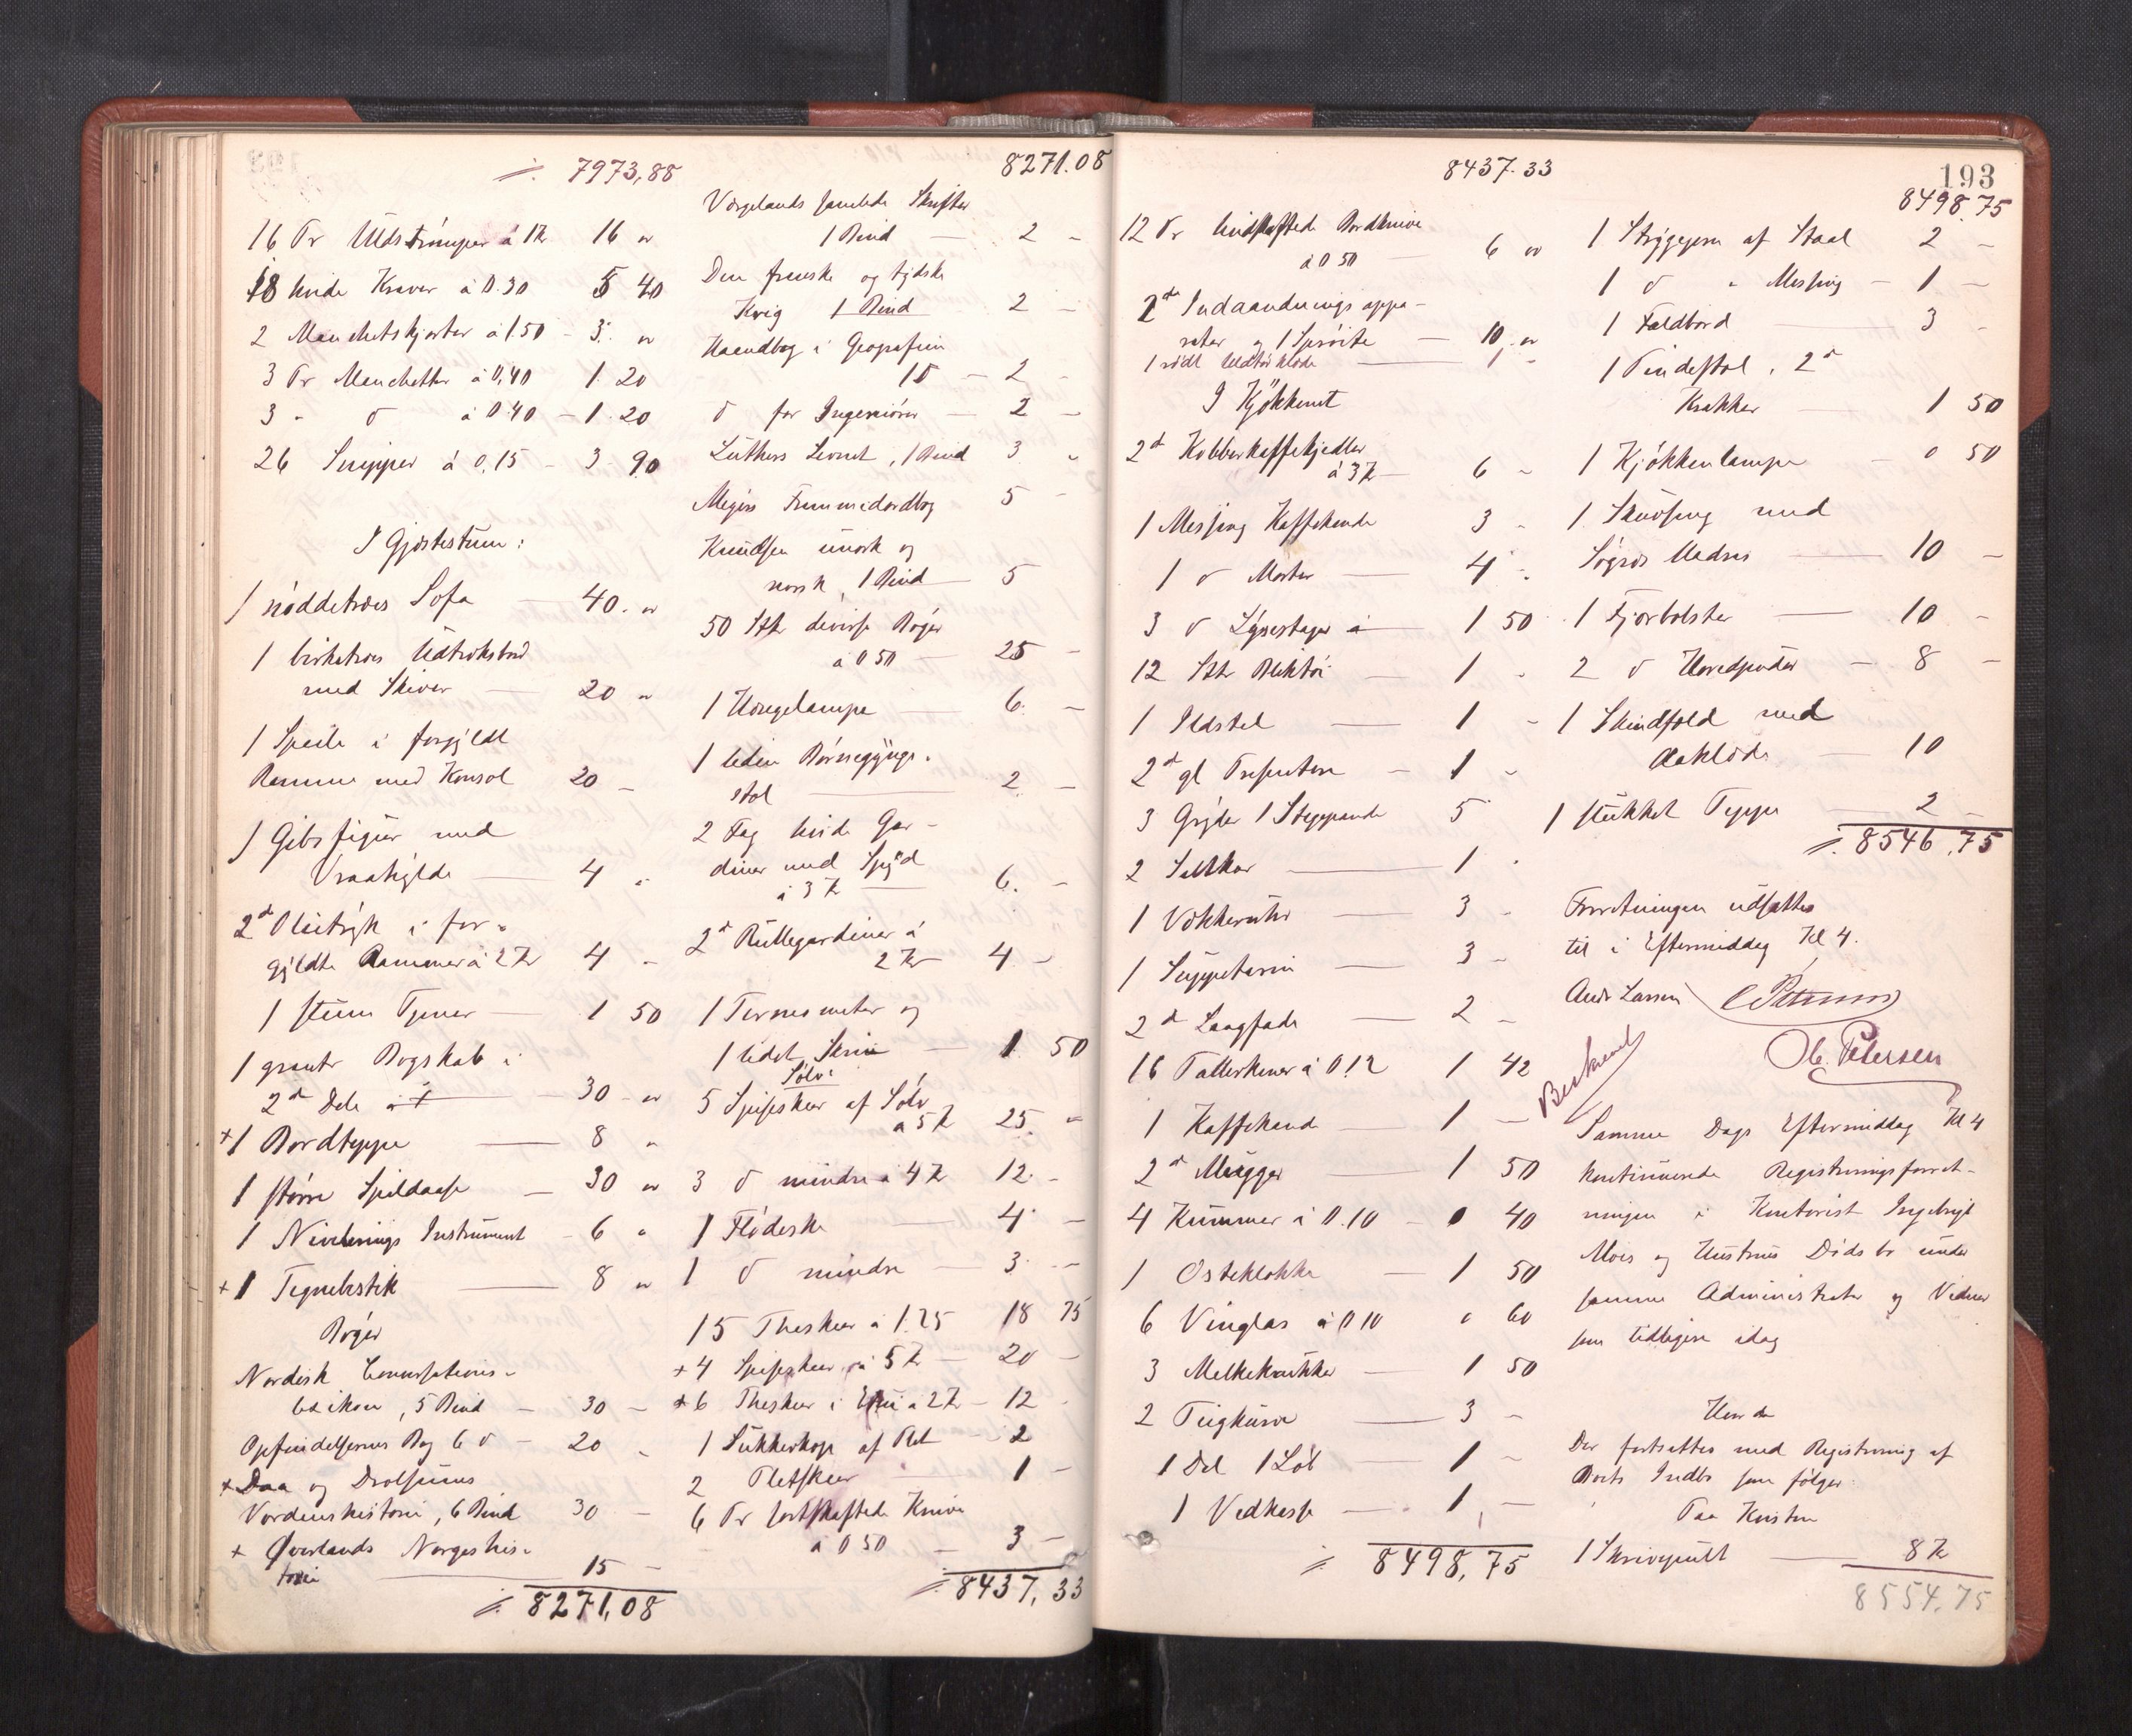 7973,88
16 Pr Uldstrømper à 1 Kr 16 "
18 hvide Kraver à 0.30 5 40
2 Manchetskjorter à 1.50 - 3. "
3 Pr Manchetter à 0,40 1. 20
3 " d à 0.40 - 1. 20
26 Snipper à 0,15 - 3. 90
I Gjæstestuen:
1 nøddetræes Sofa 40. "
1 birketræes Udtræksbord
med Skiver 20 "
1 Speile i forgyldt
Ramme med Konsol 20 -
1 Gibsfigur med
Vraahylde 4 "
2d Olietryk i for-
gyldte Rammer à 2 Kr 4 -
1 stum Tjener 1 50
1 Bogskab i
2d Dele 30 - "
+ 1 Bordteppe 8 "
1 større Spildaase 30 "
1 Nivelerings Instrument - 6 "
+ 1 Tegnebestik 8 "
Bøger
Nordisk Conversations-
lexikon, 5 Bind - 30 -
Opfindelsernes Bog 6 d - 20 -
+ Daa og Drolsums
Verdenshistorie, 6 Bind 30 -
+ Øverlands Norgeshis-
torie 15 -
8271,08
8271.08
Wergelands samlede Skrifter
1 Bind 2 -
Den franske og tydske
Krig 1 Bind 2 -
Haandbog i Geografien
1 d - 2 -
d for Ingeniører 2 -
Luthers Levnet, 1 Bind 3 "
Meyers Fremmedordbog 5 -
Knudsen unorsk og
norsk, 1 Bind 5
50 Stk diverse Bøger
à 0 50 25 -
1 Hængelampe 6. -
1 liden Børnegynge-
stol 2 -
2 Fag hvide Gar-
diner med Spyd
à 3 Kr 6. -
2d Rullegardiner à
2 Kr 4 -
1 Termometer og
1 lidet Skrin 1 50
Sølv:
5 Spiseskeer af Sølv
à 5 Kr 25. "
3 d mindre à 4 Kr 12. -
1 Flødeske 4 -
1 d mindre 3. -
15 Theskeer à 1.25 18 75
+ 4 Spiseskeer à 5 Kr 20 -
+ 6 Theskeer i Etui à 2 Kr - 12 -
1 Sukkerkop af Plet - 2
2 Pletskeer 1 -
6 Pr sortskaftede Knive
à 0 50 3 -
8437,33
8437.33
12 Pr hvidskaftede Bordknive
à 0 50 6 "
2d Indaandingsappa-
rater og 1 Sprøite 10 "
1 rødt Uldtørklæde 1 "
I Kjøkkenet
2d Kobberkaffekjedler
à 3 Kr 6 -
1 Messing Kaffekande 3 -
1 d Morter 4 -
3 d Lysestager 1 50
12 Stk Bliktøi 1 -
1 Ildstel 1 -
2d gl 1 -
3 Gryder 1 Stegepande 5
2 Saltkar 1 -
1 Vækkeruhr 3 -
1 Suppeterrin 3 -
2d Langfade 2 -
16 Tallerkener à 0.12 1 42
1 Kaffekande 1 -
2d Mugger 1 50
4 Kummer à 0.10 - 0 40
1 Osteklokke 1 50
6 Vinglas à 0 10 0 60
3 Melkekrukker 1 50
2 Tugkurve 3 -
1 Del 1 Løb 1 -
1 Vedkasse 1, -
8498,75
193
8498.75
1 Strygejern af Staal 2 -
1 d " Messing - 1 -
1 Foldbord 3 -
1 Pindestol, 2d
Krakker 1 50
1 Kjøkkenlampe 0 50
1. Skuvseng med
Søgræs Madras 10 -
1 Fjærbolster 10 -
2 d Hovedputer 8 -
1 Skindfeld med
Aaklæde 10
1 stukket Teppe 2 -
8546,75
Forretningen udsættes
til i Eftermiddag Kl 4.
Andr Larsen C Petersen
Beskrevet
Ole Petersen
Samme Dags Eftermiddag Kl 4
kontinuerede Registreringsforret-
ningen i Kontorist Ingebrigt
Moes og Hustrus Dødsbo under
samme Administrator og Vidner
som tidligere idag
Hvorda
Der fortsattes med Registrering af
Boets Indbo som følger:
Paa Kontoret
1 Skrivepult 8 Kr
8554.75